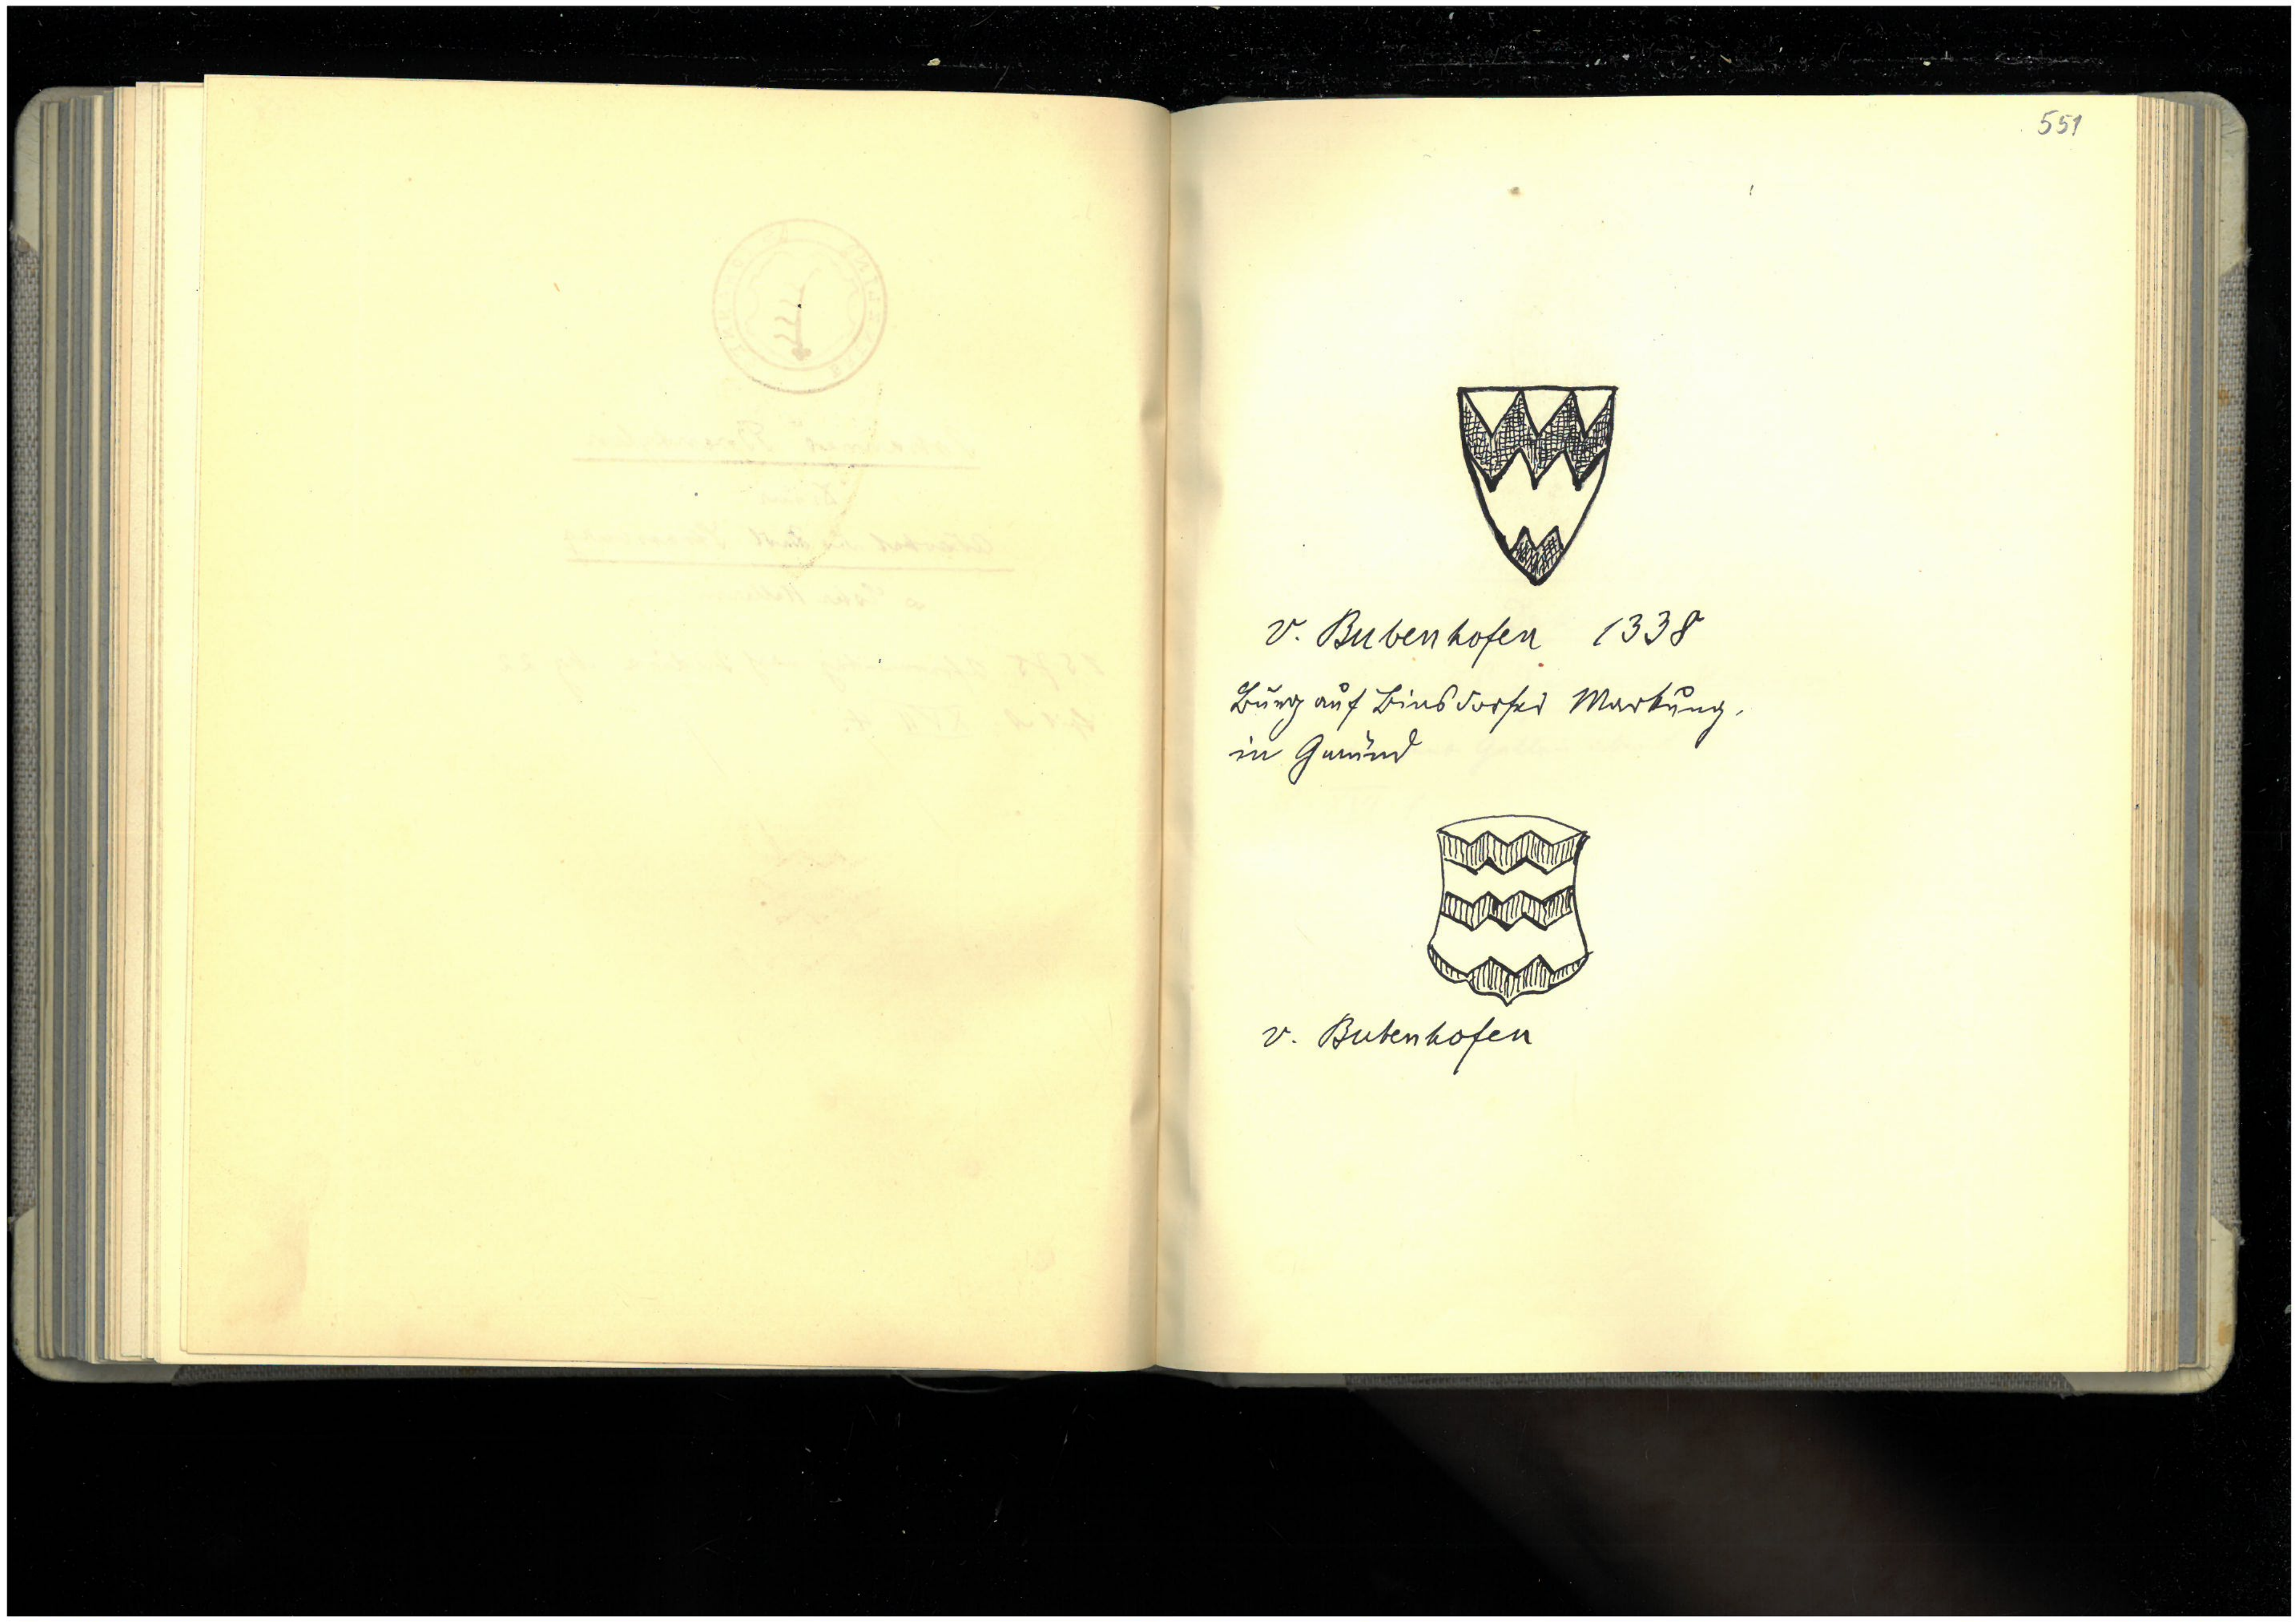 551
v. Bubenhofen 1338
Burg auf Binsdorfer Markung,
in Gmünd
v. Bubenhofen